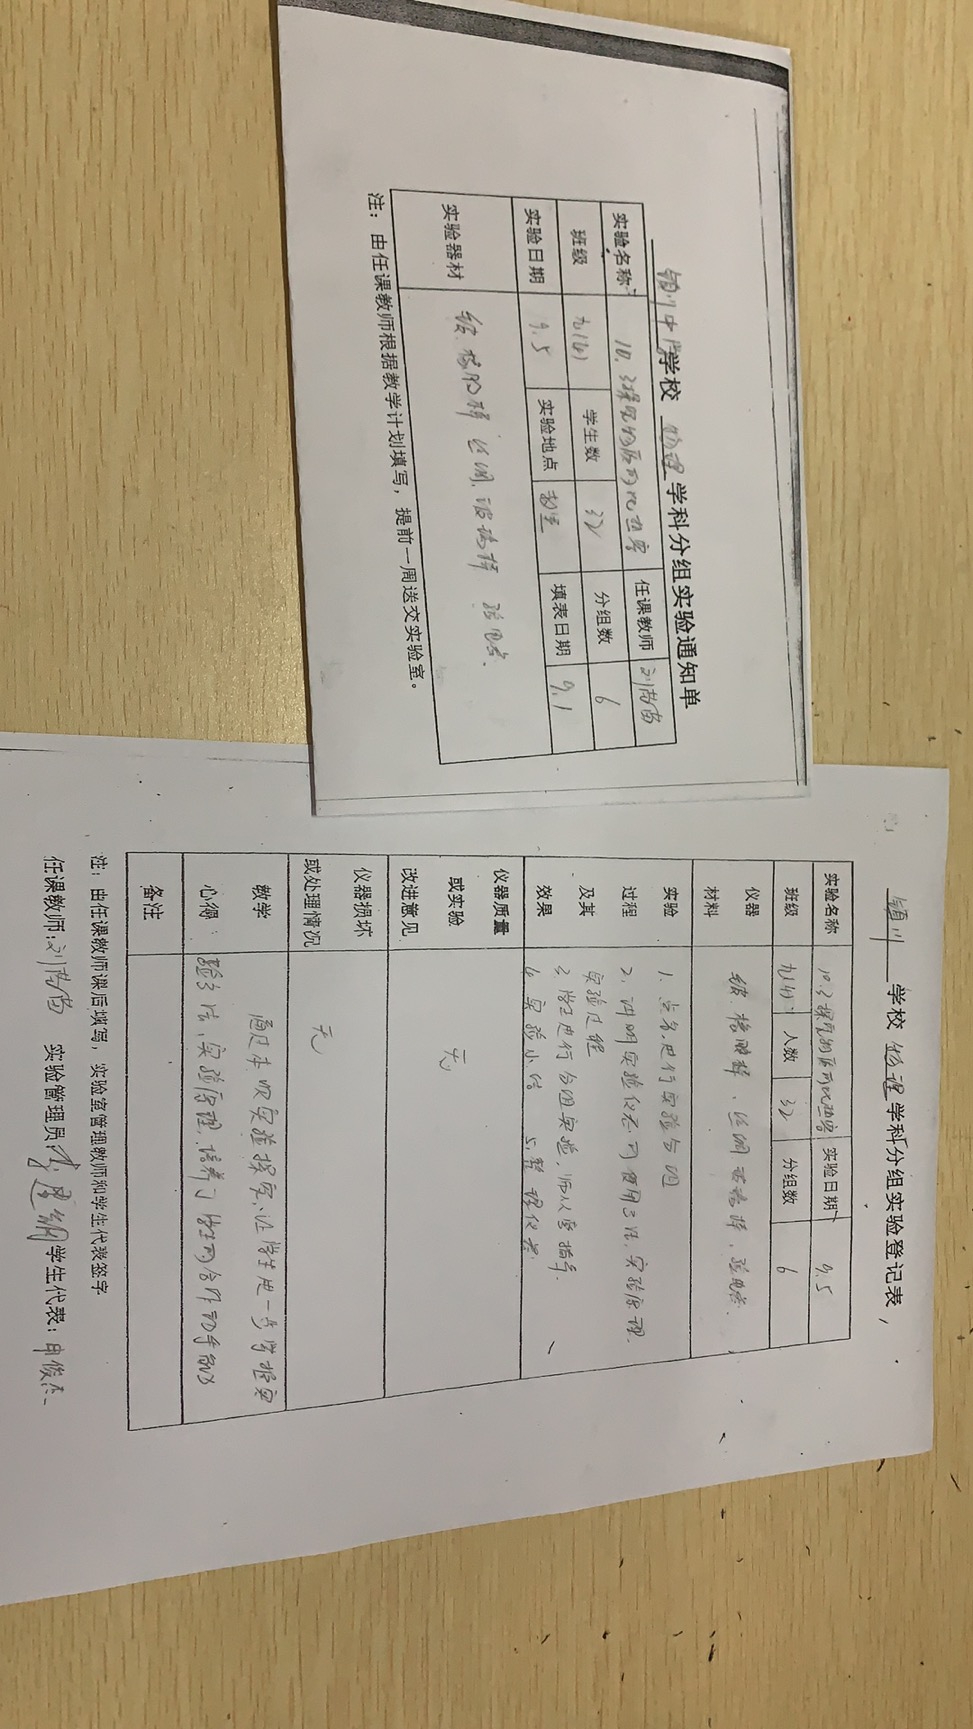 颍川中学学校 物理学科分组实验通知单
实验名称 10.3探究物质的比热容 任课教师
班级 九(4) 学生数 32 分组数 6
实验日期 9.5 实验地点 教室 填表日期 9.1
实验器材 橡胶棒 丝绸、玻璃棒 验电器.
注：由任课教师根据教学计划填写，提前一周送交实验室。
颍川 学校 物理学科分组实验登记表
实验名称 10.3探究物质的比热容 实验日期 9.5
班级 九(4) 人数 32 分组数 6
仪器材料 橡胶棒、丝绸 玻璃棒、验电器.
实验过程及其效果 1、点名,进行实验分组
2、讲明实验仪器的使用方法、实验原理.
实验过程
3、学生进行分组实验,师从旁指导.
4、实验小结 5、整理仪器.
仪器质量或实验改进意见 无
仪器损坏或处理情况 无
教学心得 通过本次实验探究,让学生进一步掌握实
验方法,实验原理,培养了学生的合作动手能力
备注
注：由任课教师课后填写，实验室管理教师和学生代表签字
任课教师: 实验管理员: 学生代表: 申俊杰